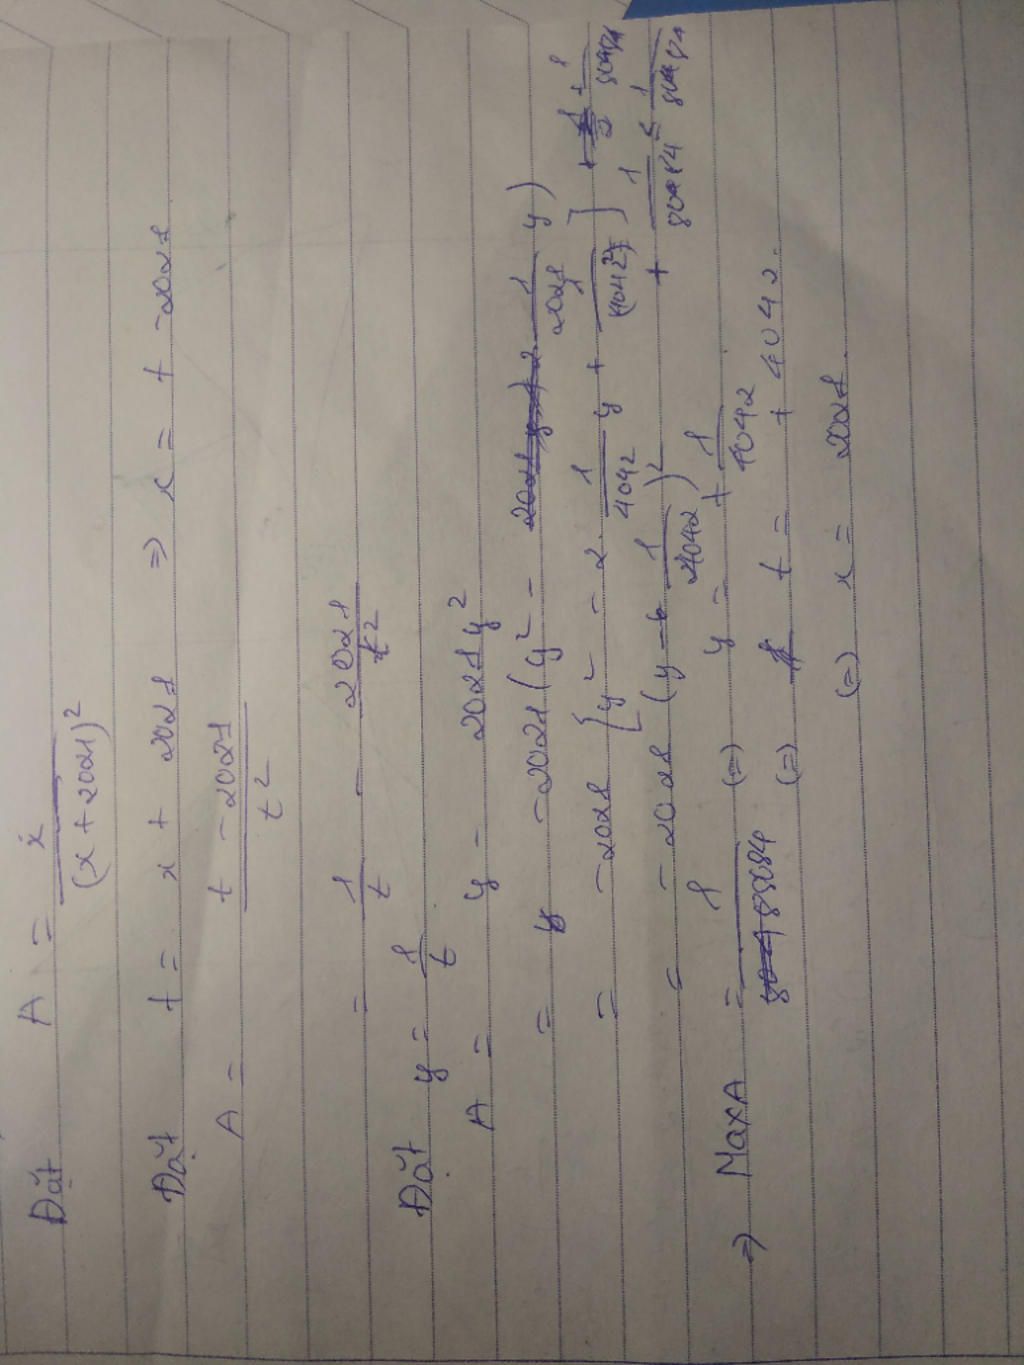 Đặt A = x / (x + 2021)²
Đặt t = x + 2021 => x = t - 2021
A = t - 2021 / t²
= 1/t - 2021/t²
Đặt y = 1/t
A = y - 2021y²
= -2021(y² - 1/2021 y)
= -2021 [y² - 2. 1/4042 y + 1/(4042²)] + 1/8084
= -2021 (y - 1/4042)² + 1/8084 ≤ 1/8084
=> MaxA = 1/8084 (=) y = + 1/4042
(=) t = + 4042.
(=) x = 2021.